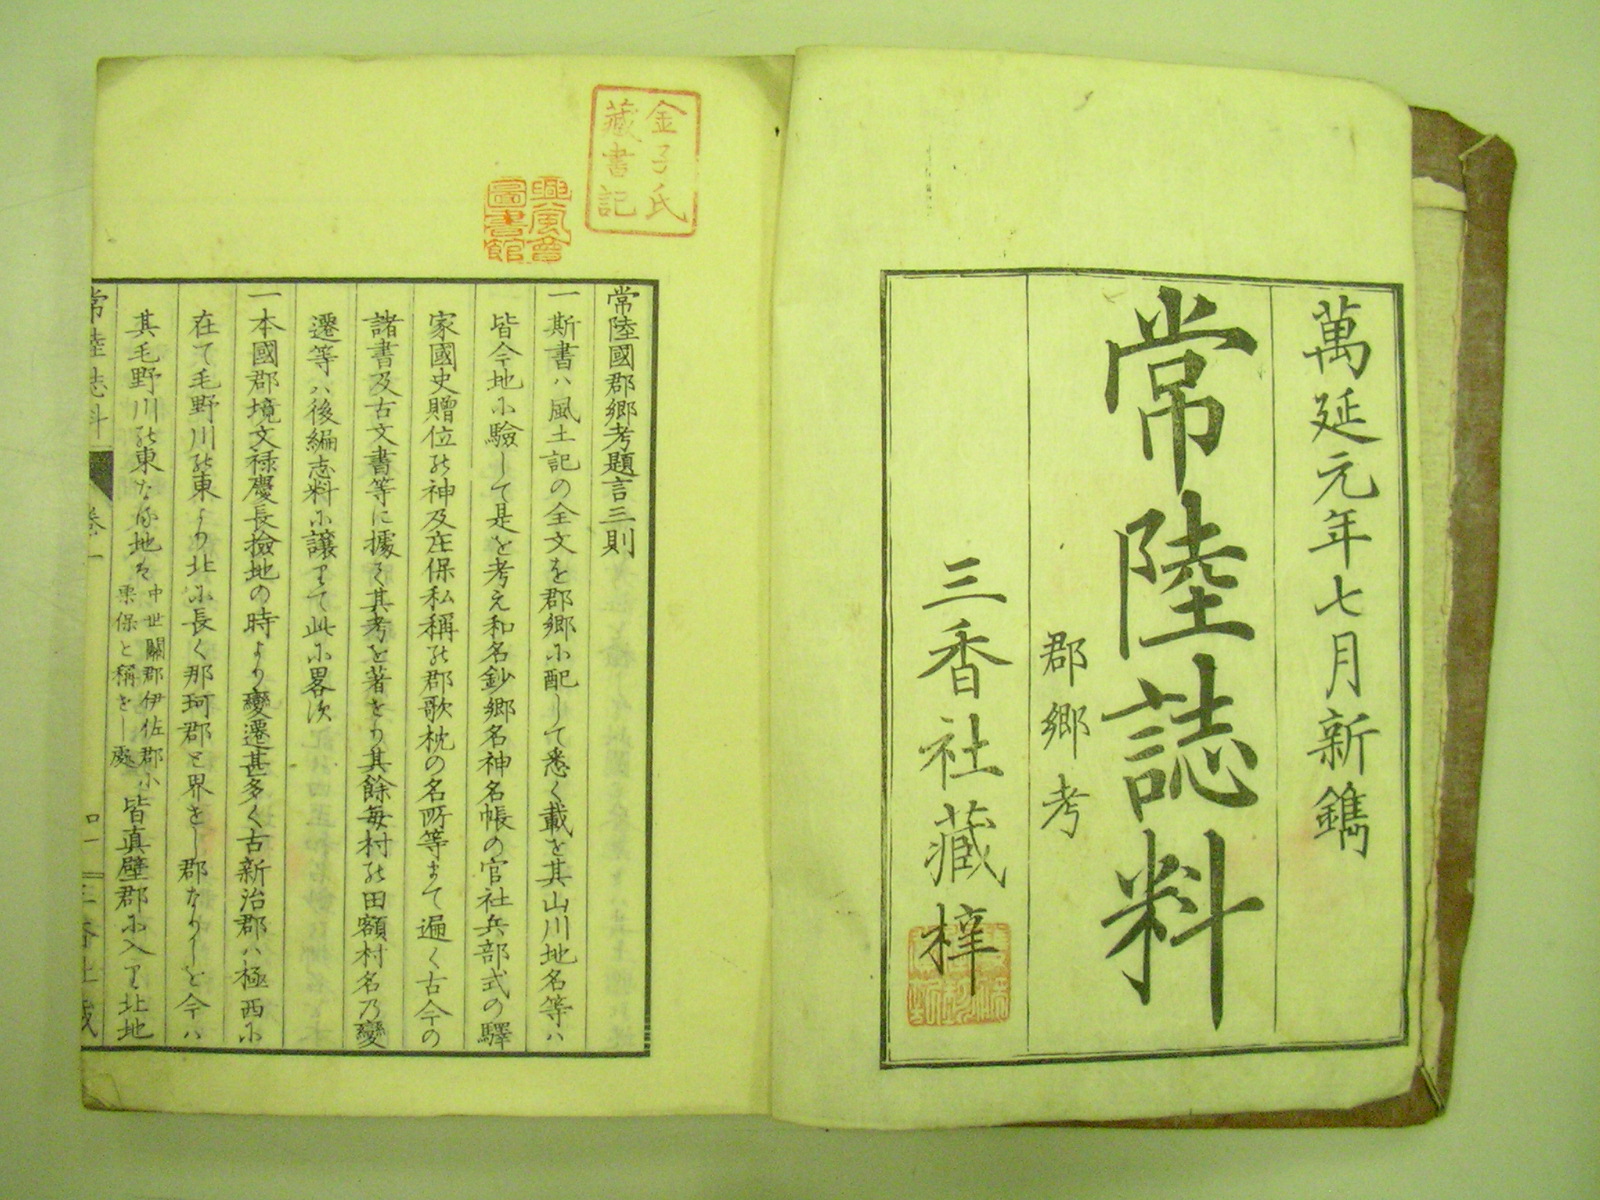 萬延元年七月新鐫
常陸誌料
郡郷考
三香社藏梓
金子氏
藏書記
興風會
圖書館
常陸國郡郷考題言三則
一斯書ハ風土記の全文を郡郷尓配して悉く載を其山川地名等ハ
皆今地尓驗して是を考え和名鈔郷名神名帳の官社兵部式の驛
家國史贈位能神及庄保私稱能郡歌枕の名所等まて遍く古今の
諸書及古文書等に據て其考を著をり其餘毎村能田額村名乃變
遷等ハ後編志料尓譲りて此尓畧須
一本國郡境文禄慶長撿地の時より變遷甚多く古新治郡ハ極西尓
在て毛野川能東より北尓長く那珂郡と界をし郡なりしを今ハ
其毛野川能東なる地を
中世關郡伊佐郡小
栗保と稱をし處
皆真壁郡尓入り北地
常陸誌料
卷一